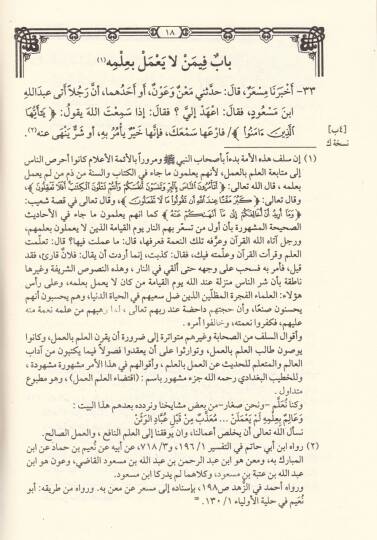 ١٨
بابٌ فِيمَنْ لا يَعْمَلْ بِعِلْمِه (١)
٣٣- أَخْبَرَنَا مِسْعَرٌ، قالَ: حدَّثني مَعْنٌ وَعَوْنٌ، أو أَحَدُهما، أنَّ رَجُلاً أتى عبدَاللهِ
ابنَ مَسْعُودٍ، فقالَ: اعْهَدْ إِليَّ ؟ فقالَ: إذا سَمِعْتَ اللهَ يقولُ: ﴿ يَٰٓأَيُّهَا
الَّذِينَ ءَامَنُوا ﴾ فارْعَها سَمْعَكَ، فإنَّها خَيْرٌ يأْمُرُ بِهِ، أو شَرٌّ يَنْهَى عنه (٢).
[٤ب]
نسخة ك
(١) إن سلف هذه الأمة بدءاً بأصحاب النبي ﷺ ومروراً بالأئمة الأعلام كانوا أحرص الناس
إلى متابعة العلم بالعمل، لأنهم يعلمون ما جاء في الكتاب والسنة من ذم من لم يعمل
بعلمه، قال الله تعالى: ﴿ أَتَأْمُرُونَ النَّاسَ بِالْبِرِّ وَتَنسَوْنَ أَنفُسَكُمْ وَأَنتُمْ تَتْلُونَ الْكِتَابَ أَفَلَا تَعْقِلُونَ ﴾،
وقال تعالى: ﴿ كَبُرَ مَقْتًا عِندَ اللَّهِ أَن تَقُولُوا مَا لَا تَفْعَلُونَ ﴾، وقال تعالى في قصة شعيب:
﴿ وَمَا أُرِيدُ أَنْ أُخَالِفَكُمْ إِلَىٰ مَا أَنْهَاكُمْ عَنْهُ ﴾ كما أنهم يعلمون ما جاء في الأحاديث
الصحيحة المشهورة بأن أول من تسعَّر بهم النار يوم القيامة الذين لا يعملون بعلمهم،
ورجل آتاه الله القرآن وعرَّفه تلك النعمة فعرفها، قال: ما عملت فيها؟ قال: تعلّمت
العلم وقرأت القرآن وعلَّمته فيك، فقال: كذبت، إنما أردت أن يقال: فلانٌ قارئ، فقد
قيل، فأمر به فسحب على وجهه حتى ألقي في النار ، وهذه النصوص الشريفة وغيرها
ناطقة بأن شر الناس منزلة عند الله يوم القيامة من كان لا يعمل بعلمه، وعلى رأس
هؤلاء: العلماء الفجرة المظلِّين الذين ضل سعيهم في الحياة الدنيا، وهم يحسبون أنهم
يحسنون صنعًا، وأن حجتهم داحضة عند ربهم تعالى ، لما رهبهم من علمه نعمة منه
عليهم، فكفروا نعمته، وخالفوا أمره .
وأقوال السلف من الصحابة وغيرهم متواترة إلى ضرورة أن يقرن العلم بالعمل، وكانوا
يوصون طالب العلم بالعمل، وتوارثوا على أن يعقدوا فصولاً فيما يكتبون من آداب
العالم والمتعلم للحديث عن العمل بالعلم ، وأقوالهم في هذا الأمر مشهورة مشهودة ،
وللخطيب البغدادي رحمه الله جزء مشهور باسم : (اقتضاء العلم العمل) ، وهو مطبوع
متداول .
وكنا نُعَلَّم -ونحن صغار- من بعض مشايخنا ونردده بعدهم هذا البيت :
وَعَالِمٍ بِعِلْمِهِ لَمْ يَعْمَلَنْ ... مُعَذَّبٌ مِنْ قَبْلِ عُبَّادِ الوَثَنْ
نسأل الله تعالى أن يخلص أعمالنا، وأن يوفقنا إلى العلم النافع ، والعمل الصالح.
(٢) رواه ابن أبي حاتم في التفسير ١/ ١٩٦، ٣/ ٧١٨، عن أبيه عن نُعيم بن حماد عن ابن
المبارك به، ومعن هو ابن عبد الرحمن بن عبد الله بن مسعود القاضي، وعون هو ابن
عبد الله بن عتبة بن مسعود، وكلاهما لم يدركا ابن مسعود.
ورواه أحمد في الزهد ص١٩٨، بإسناده إلى مسعر عن معن به. ورواه من طريقه: أبو
نُعَيم في حلية الأولياء ١/ ١٣٠. =